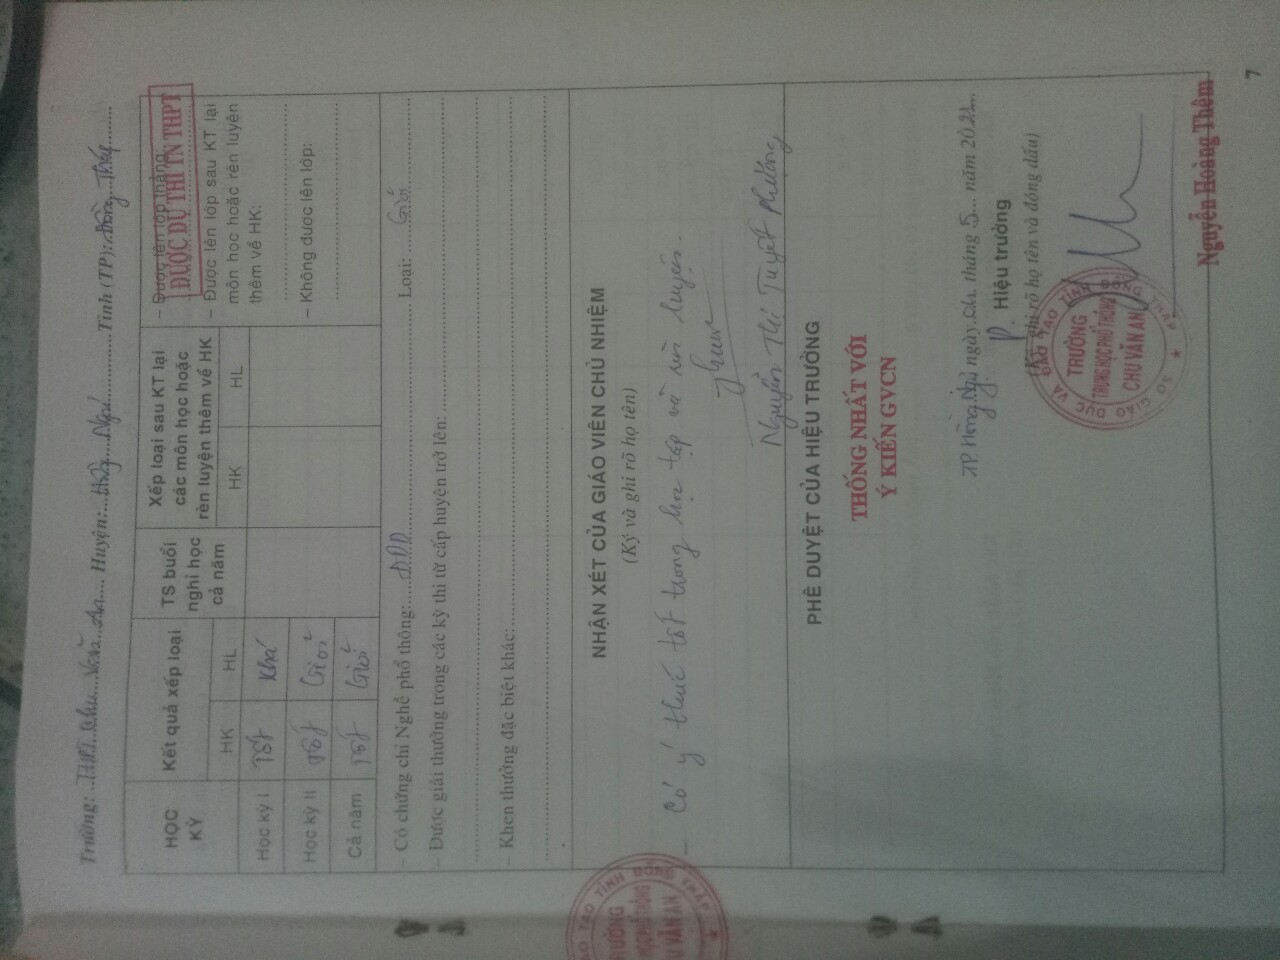 Trường: THPT Chu Văn An Huyện: Hồng Ngự Tỉnh (TP): Đồng Tháp
HỌC KỲ
Kết quả xếp loại
TS buổi nghỉ học cả năm
Xếp loại sau KT lại các môn học hoặc rèn luyện thêm về HK
HK HL HK HL
Học kỳ I Tốt Khá
Học kỳ II Tốt Giỏi
Cả năm Tốt Giỏi
– Được lên lớp thẳng
ĐƯỢC DỰ THI TN THPT
– Được lên lớp sau KT lại
môn học hoặc rèn luyện
thêm về HK:
– Không được lên lớp:
– Có chứng chỉ Nghề phổ thông: Loại: Giỏi
– Được giải thưởng trong các kỳ thi từ cấp huyện trở lên:
– Khen thưởng đặc biệt khác:
NHẬN XÉT CỦA GIÁO VIÊN CHỦ NHIỆM
(Ký và ghi rõ họ tên)
– Có ý thức tốt trong học tập và rèn luyện.
Nguyễn Thị Tuyết Phượng
PHÊ DUYỆT CỦA HIỆU TRƯỞNG
THỐNG NHẤT VỚI
Ý KIẾN GVCN
TP. Hồng Ngự ngày tháng 5 năm 2021
P. Hiệu trưởng
(Ký, ghi rõ họ tên và đóng dấu)
SỞ GIÁO DỤC VÀ ĐÀO TẠO TỈNH ĐỒNG THÁP
TRƯỜNG
TRUNG HỌC PHỔ THÔNG
CHU VĂN AN
Nguyễn Hoàng Thêm
7
TẠO TỈNH ĐỒNG THÁP
TRƯỜNG
HỌC PHỔ THÔNG
U VĂN AN